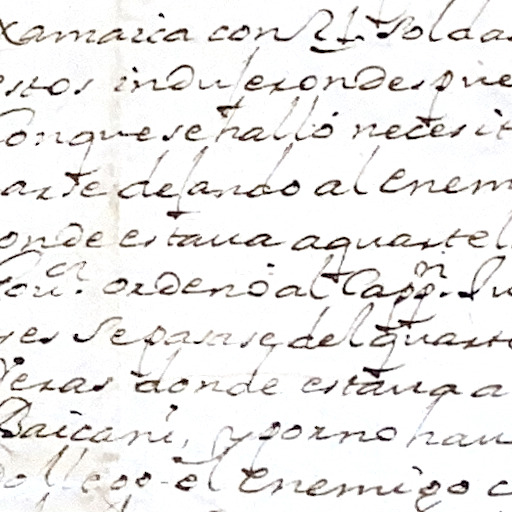 xamaica con 21 soldad
estos indujeron despue
conque se halló necesit
arte dejando al enem
onde estaua aquartel
Gou.or ordenó al Capp.n Ju
res se pasase del quarte
Veras donde estaua a
Baicani, y por no hau
llegó el enemigo c